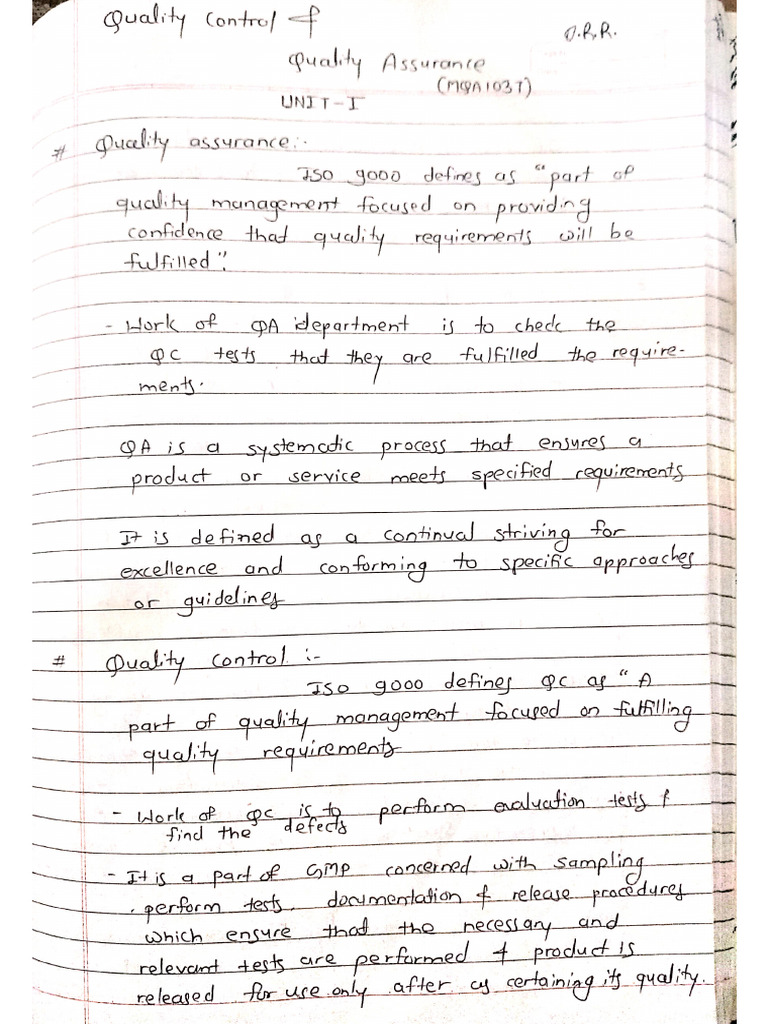 Quality Control &
O.R.R.
Quality Assurance
(MQA103T)
UNIT-I
# Quality assurance:-
ISO 9000 defines as "part of
quality management focused on providing
confidence that quality requirements will be
fulfilled".
- Work of QA department is to check the
QC tests that they are fulfilled the require-
ments.
QA is a systematic process that ensures a
product or service meets specified requirements
It is defined as a continual striving for
excellence and conforming to specific approaches
or guidelines
# Quality Control :-
ISO 9000 defines QC as "A
part of quality management focused on fulfilling
quality requirements
- Work of QC is to perform evaluation tests &
find the defects
- It is a part of GMP concerned with sampling
perform tests, documentation & release procedures
which ensure that the necessary and
relevant tests are performed & product is
released for use only after as certaining its quality.